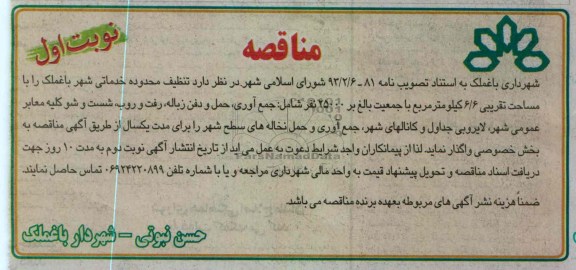 نوبت اول
مناقصه
شهرداری باغملک به استناد تصویب نامه ۸۱ ـ ۹۳/۲/۶ شورای اسلامی شهر در نظر دارد تنظیف محدوده خدماتی شهر باغملک را با
مساحت تقریبی ۶/۶ کیلومترمربع با جمعیت بالغ بر ۲۵۰۰۰ نفر شامل: جمع آوری، حمل و دفن زباله، رفت و روب، شست و شو کلیه معابر
عمومی شهر، لایروبی جداول و کانالهای شهر، جمع آوری و حمل نخاله های سطح شهر را برای مدت یکسال از طریق آگهی مناقصه به
بخش خصوصی واگذار نماید. لذا از پیمانکاران واجد شرایط دعوت به عمل می اید از تاریخ انتشار آگهی نوبت دوم به مدت ۱۰ روز جهت
دریافت اسناد مناقصه و تحویل پیشنهاد قیمت به واحد مالی شهرداری مراجعه و یا با شماره تلفن ۰۶۹۲۴۲۲۰۸۹۹ تماس حاصل نمایند.
ضمناً هزینه نشر آگهی های مربوطه بعهده برنده مناقصه می باشد.
حسن نبوتی – شهردار باغملک
ParsNamadData